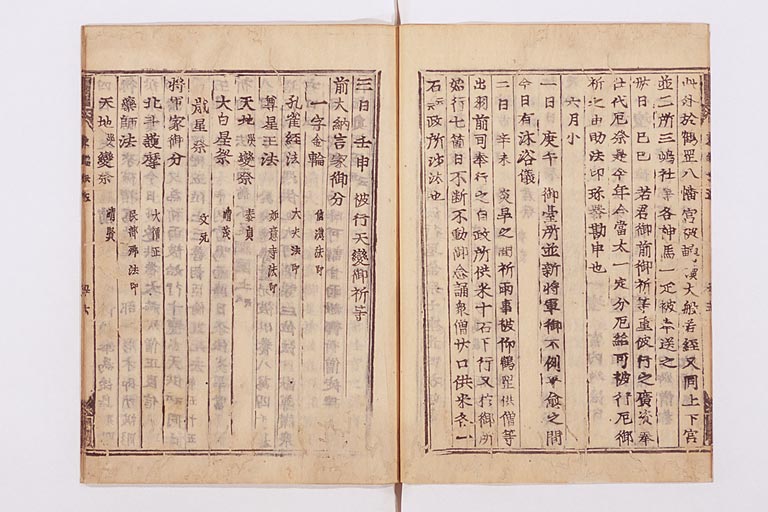 此外於鶴岡八幡宮被轉讀大般若經又同上下宮
並二所三嶋社等各神馬一疋被奉送之
廿日己巳 若君御前御祈等重被行之廣資奉
仕代厄祭是今年令當太一定分厄給可被行厄御
祈之由助法印珎譽勘申也
六月小
一日庚午 御臺所並新將軍御不例平愈之間
今日有沐浴儀
二日辛未 炎旱之間祈雨事被仰鶴岡供僧等
出羽前司奉行之自政所供米十石下行又於御所
始行七箇日不断不動御念誦衆僧廿口供米各一
石云政所沙汰也
三日壬申 被行天變御祈等
前大納言家御分
一字金輪 信濃法印
孔雀經法 大夫法印
尊星王法 如意寺法印
天地災變祭 泰貞
大白星祭 晴茂
歳星祭 文元
將軍家御分
北斗護摩 大僧正
藥師法 法印
天地災變祭 晴賢